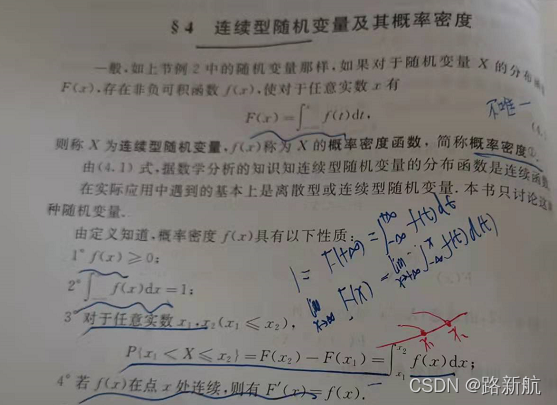 §4 连续型随机变量及其概率密度
一般,如上节例2中的随机变量那样,如果对于随机变量 X 的分布函
F(x),存在非负可积函数 f(x),使对于任意实数 x 有
不唯一
F(x)=∫ f(t)dt,
(4.
则称 X 为连续型随机变量,f(x)称为 X 的概率密度函数,简称概率密度①.
由(4.1)式,据数学分析的知识知连续型随机变量的分布函数是连续函
在实际应用中遇到的基本上是离散型或连续型随机变量.本书只讨论这
种随机变量.
由定义知道,概率密度 f(x)具有以下性质:
1=F(+∞)=∫_{-∞}^{+∞} f(t)dt
1° f(x)≥0;
lim_{x→∞} F(x)=lim_{x→∞}∫_{-∞}^{x} f(t)d(t)
2° ∫ f(x)dx=1;
3° 对于任意实数 x₁,x₂(x₁≤x₂),
x₁ x₂
P{x₁<X≤x₂}=F(x₂)-F(x₁)=∫_{x₁}^{x₂} f(x)dx;
4° 若 f(x)在点 x 处连续,则有 F′(x)=f(x).
CSDN @路新航